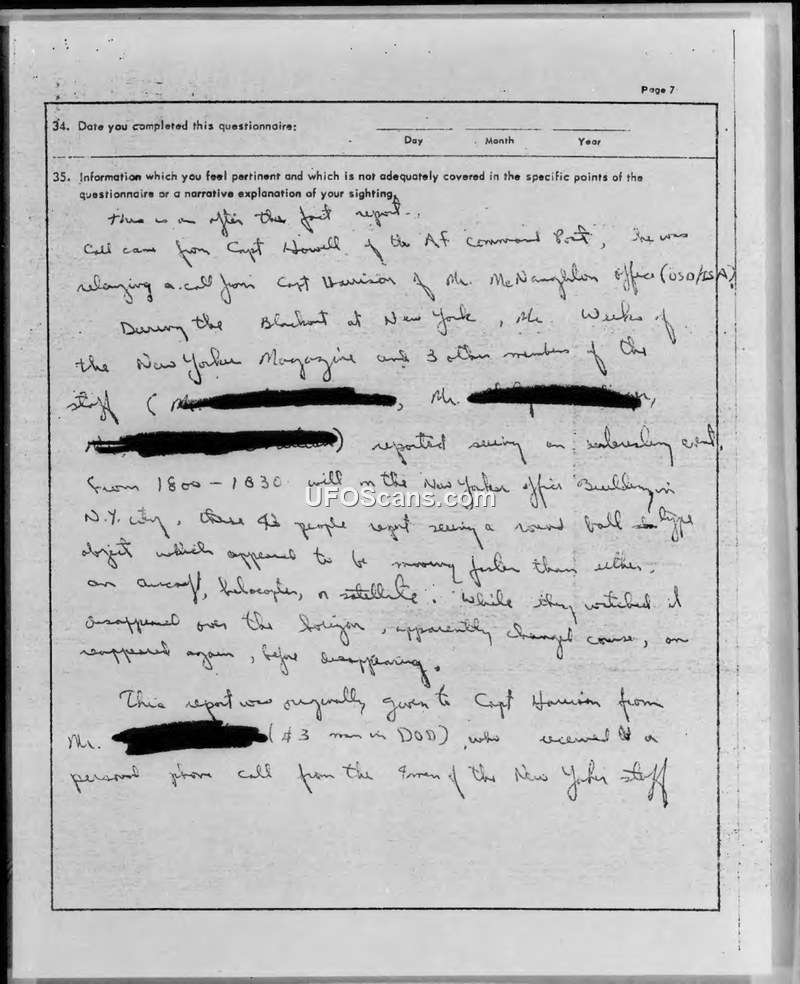 Page 7
34. Date you completed this questionnaire:
Day Month Year
35. Information which you feel pertinent and which is not adequately covered in the specific points of the
questionnaire or a narrative explanation of your sighting.
This is an after the fact report.
Call came from Capt Howell of the AF Command Post, he was
relaying a call from Capt Harrison of Mr. McNaughton office (OSD/ISA)
During the Blackout at New York, Mr. Weeks of
the New Yorker Magazine and 3 other members of the
staff ( , Mr. ,
) reported seeing an interesting event.
From 1800 - 1830 in the New Yorker office Building in
N.Y. city, these people report seeing a round ball type
object which appeared to be moving faster than either
an aircraft, helocopter, or satellite. While they watched it
disappeared over the horizon, apparently changed course, an
reappeared again, before disappearing.
This report was originally given to Capt Harrison from
Mr. (#3 man in DOD), who received a
personal phone call from the 4 men of the New Yorker staff
UFOScans.com